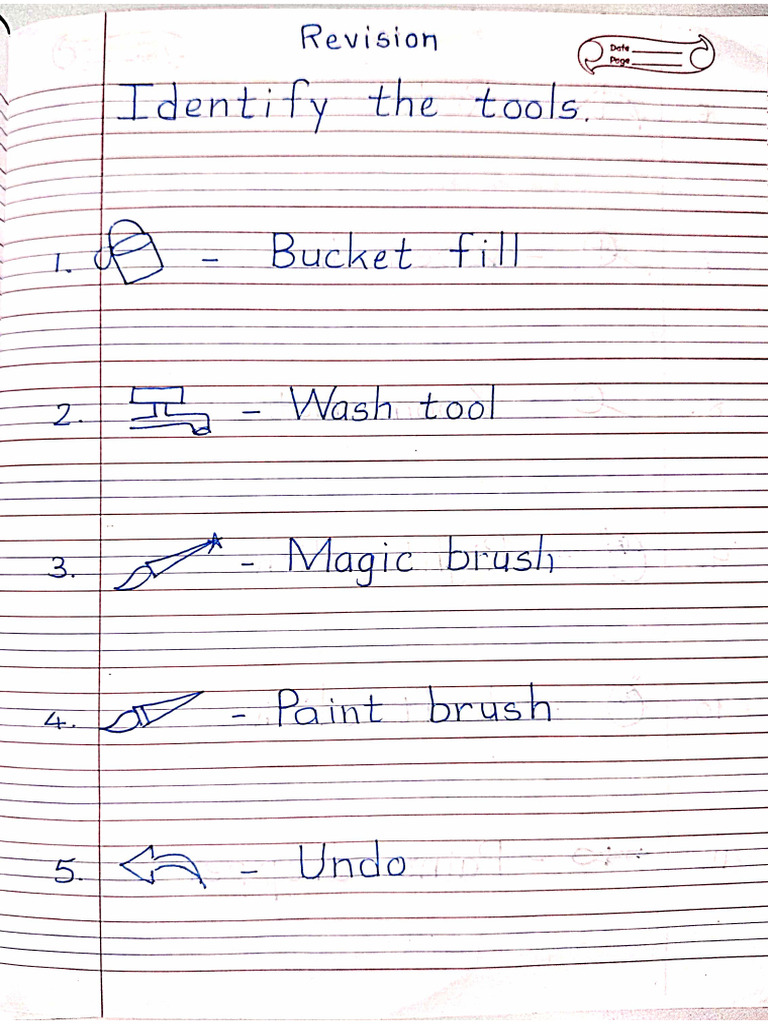 Revision
Date
Page
Identify the tools.
1. - Bucket fill
2. - Wash tool
3. - Magic brush
4. - Paint brush
5. - Undo